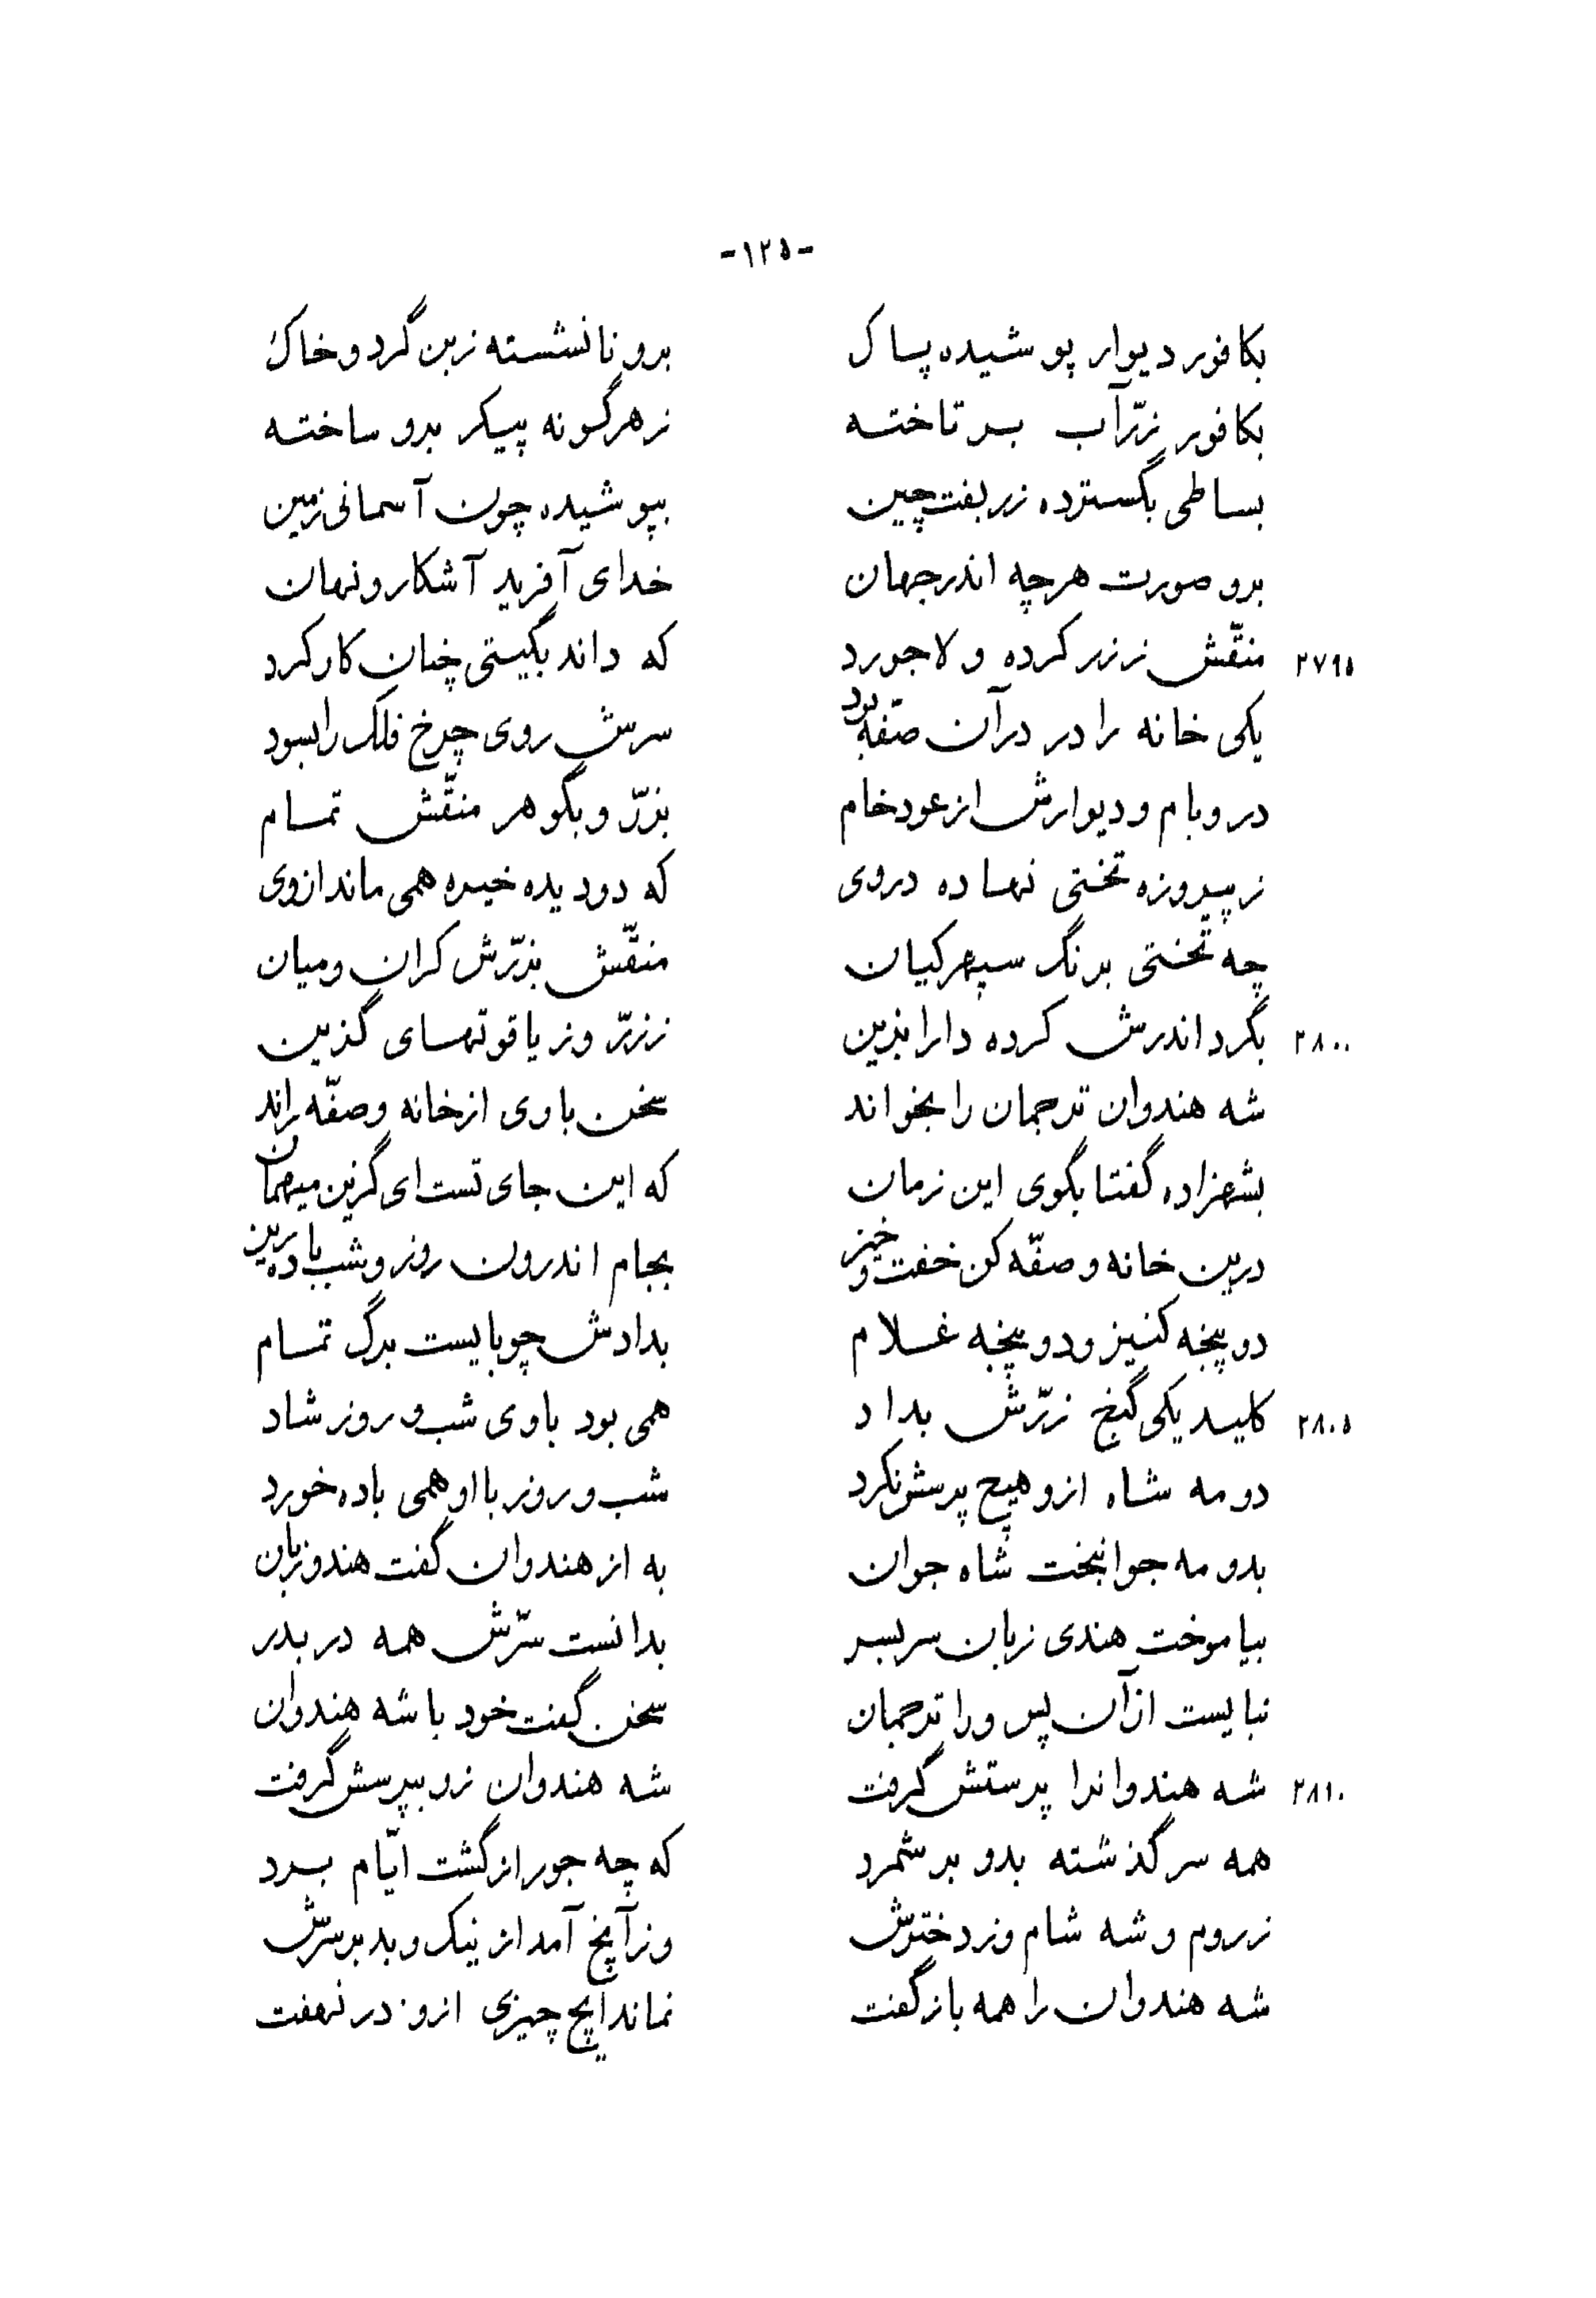 -۱۲۵-
بکافور دیوار پوشیده پاک برو نانشسته زبن گرد و خاک
بکافور زرّآب بر تاخته ز هرگونه پیکر برو ساخته
بساطی بگسترده زربفت چین بپوشیده چون آسمانی زمین
برو صورت هرچه اندر جهان خدای آفرید آشکار و نهان
۲۷۹۵ منقّش ز زر کرده و لاجورد که داند بگیتی چنان کار کرد
یکی خانه را در در آن صفّه بود سرش روی چرخ فلک را بسود
در و بام و دیوارش از عود خام بزرّ و بگوهر منقّش تمام
ز پیروزه تختی نهاده دروی که دو دیده خیره همی ماند ازوی
چه تختی برنگ سپهر کیان منقّش بزرّش کران و میان
۲۸۰۰ بگرد اندرش کرده دارابزین ز زرّ و ز یاقوتهای گزین
شه هندوان ترجمان را بخواند سخن با وی از خانه و صفّه راند
بشهزاده گفتا بگوی این زمان که این جای تست ای گزین میهمان
درین خانه و صفّه کن خفت و خیز بجام اندرون روز و شب باده ریز
دو پنجه کنیز و دو پنجه غلام بدادش چو بایست برگ تمام
۲۸۰۵ کلید یکی گنج زرّش بداد همی بود با وی شب و روز شاد
دو مه شاه ازو هیچ پرسش نکرد شب و روز با او همی باده خورد
بدو مه جوانبخت شاه جوان به از هندوان گفت هندو زبان
بیاموخت هندی زبان سربسر بدانست سرّش همه در بدر
نبایست از آن پس ورا ترجمان سخن گفت خود با شه هندوان
۲۸۱۰ شه هندوانرا پرستش گرفت شه هندوان زو بپرسش گرفت
همه سرگذشته بدو بر شمرد که چه جور از گشت ایّام برد
ز روم و شه شام وز دخترش وز آنچ آمد از نیک و بد بر سرش
شه هندوان را همه باز گفت نماند ایچ چیزی ازو در نهفت